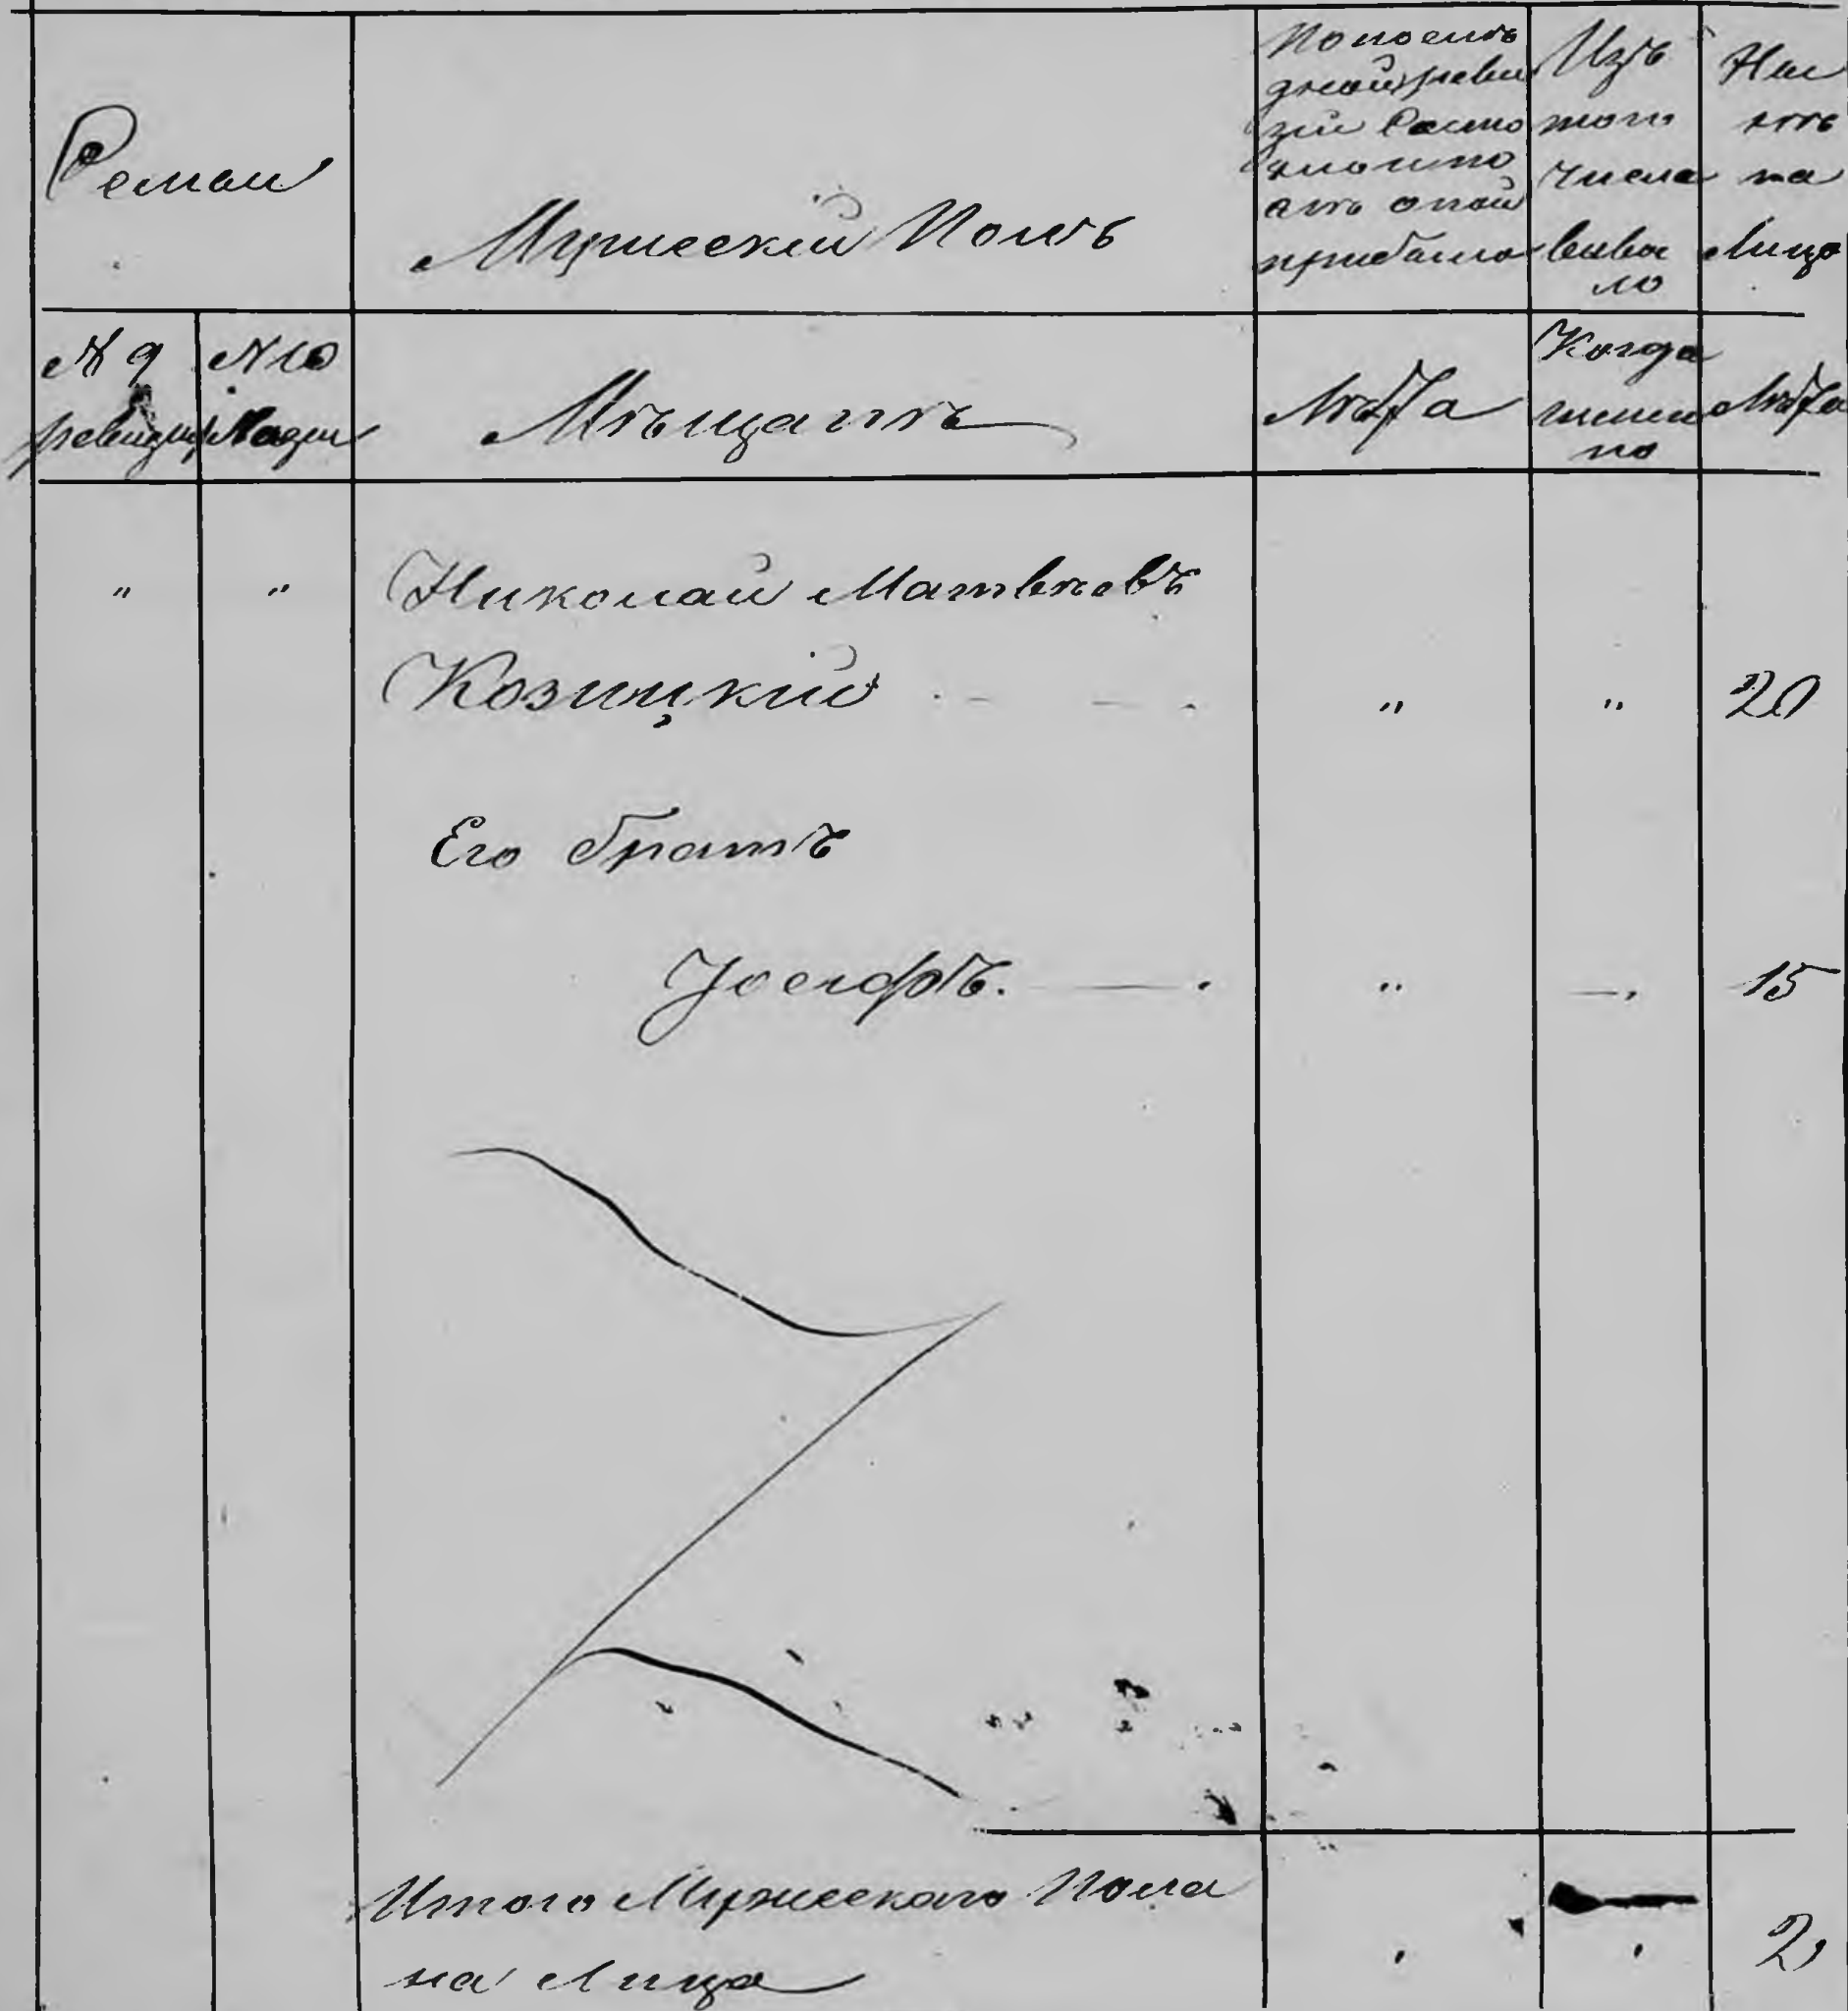 Семьи
Мужескій Полъ
По послѣ
дней реви
зіи Состо
яло и по
слѣ оной
прибыло
Изъ
того
числа
выбы
ло
Ны
нѣ
на
Лицо
№ 9
ревизіи
№ 10
Мѣщанъ
Лѣта
Когда
имен
но
Лѣта
" " Николай Матвѣевъ
Козицкій " " 20
Его братъ
Іосифъ. — " — 15
Итого Мужескаго Пола
на Лицо 2